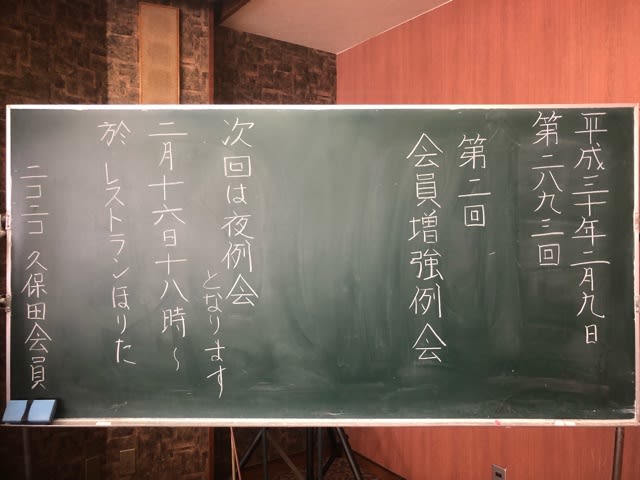 平成三十年二月九日
第二六九三回
第二回
会員増強例会
次回は夜例会
となります
二月十六日十八時～
於 レストランほりた
ニコニコ 久保田会員